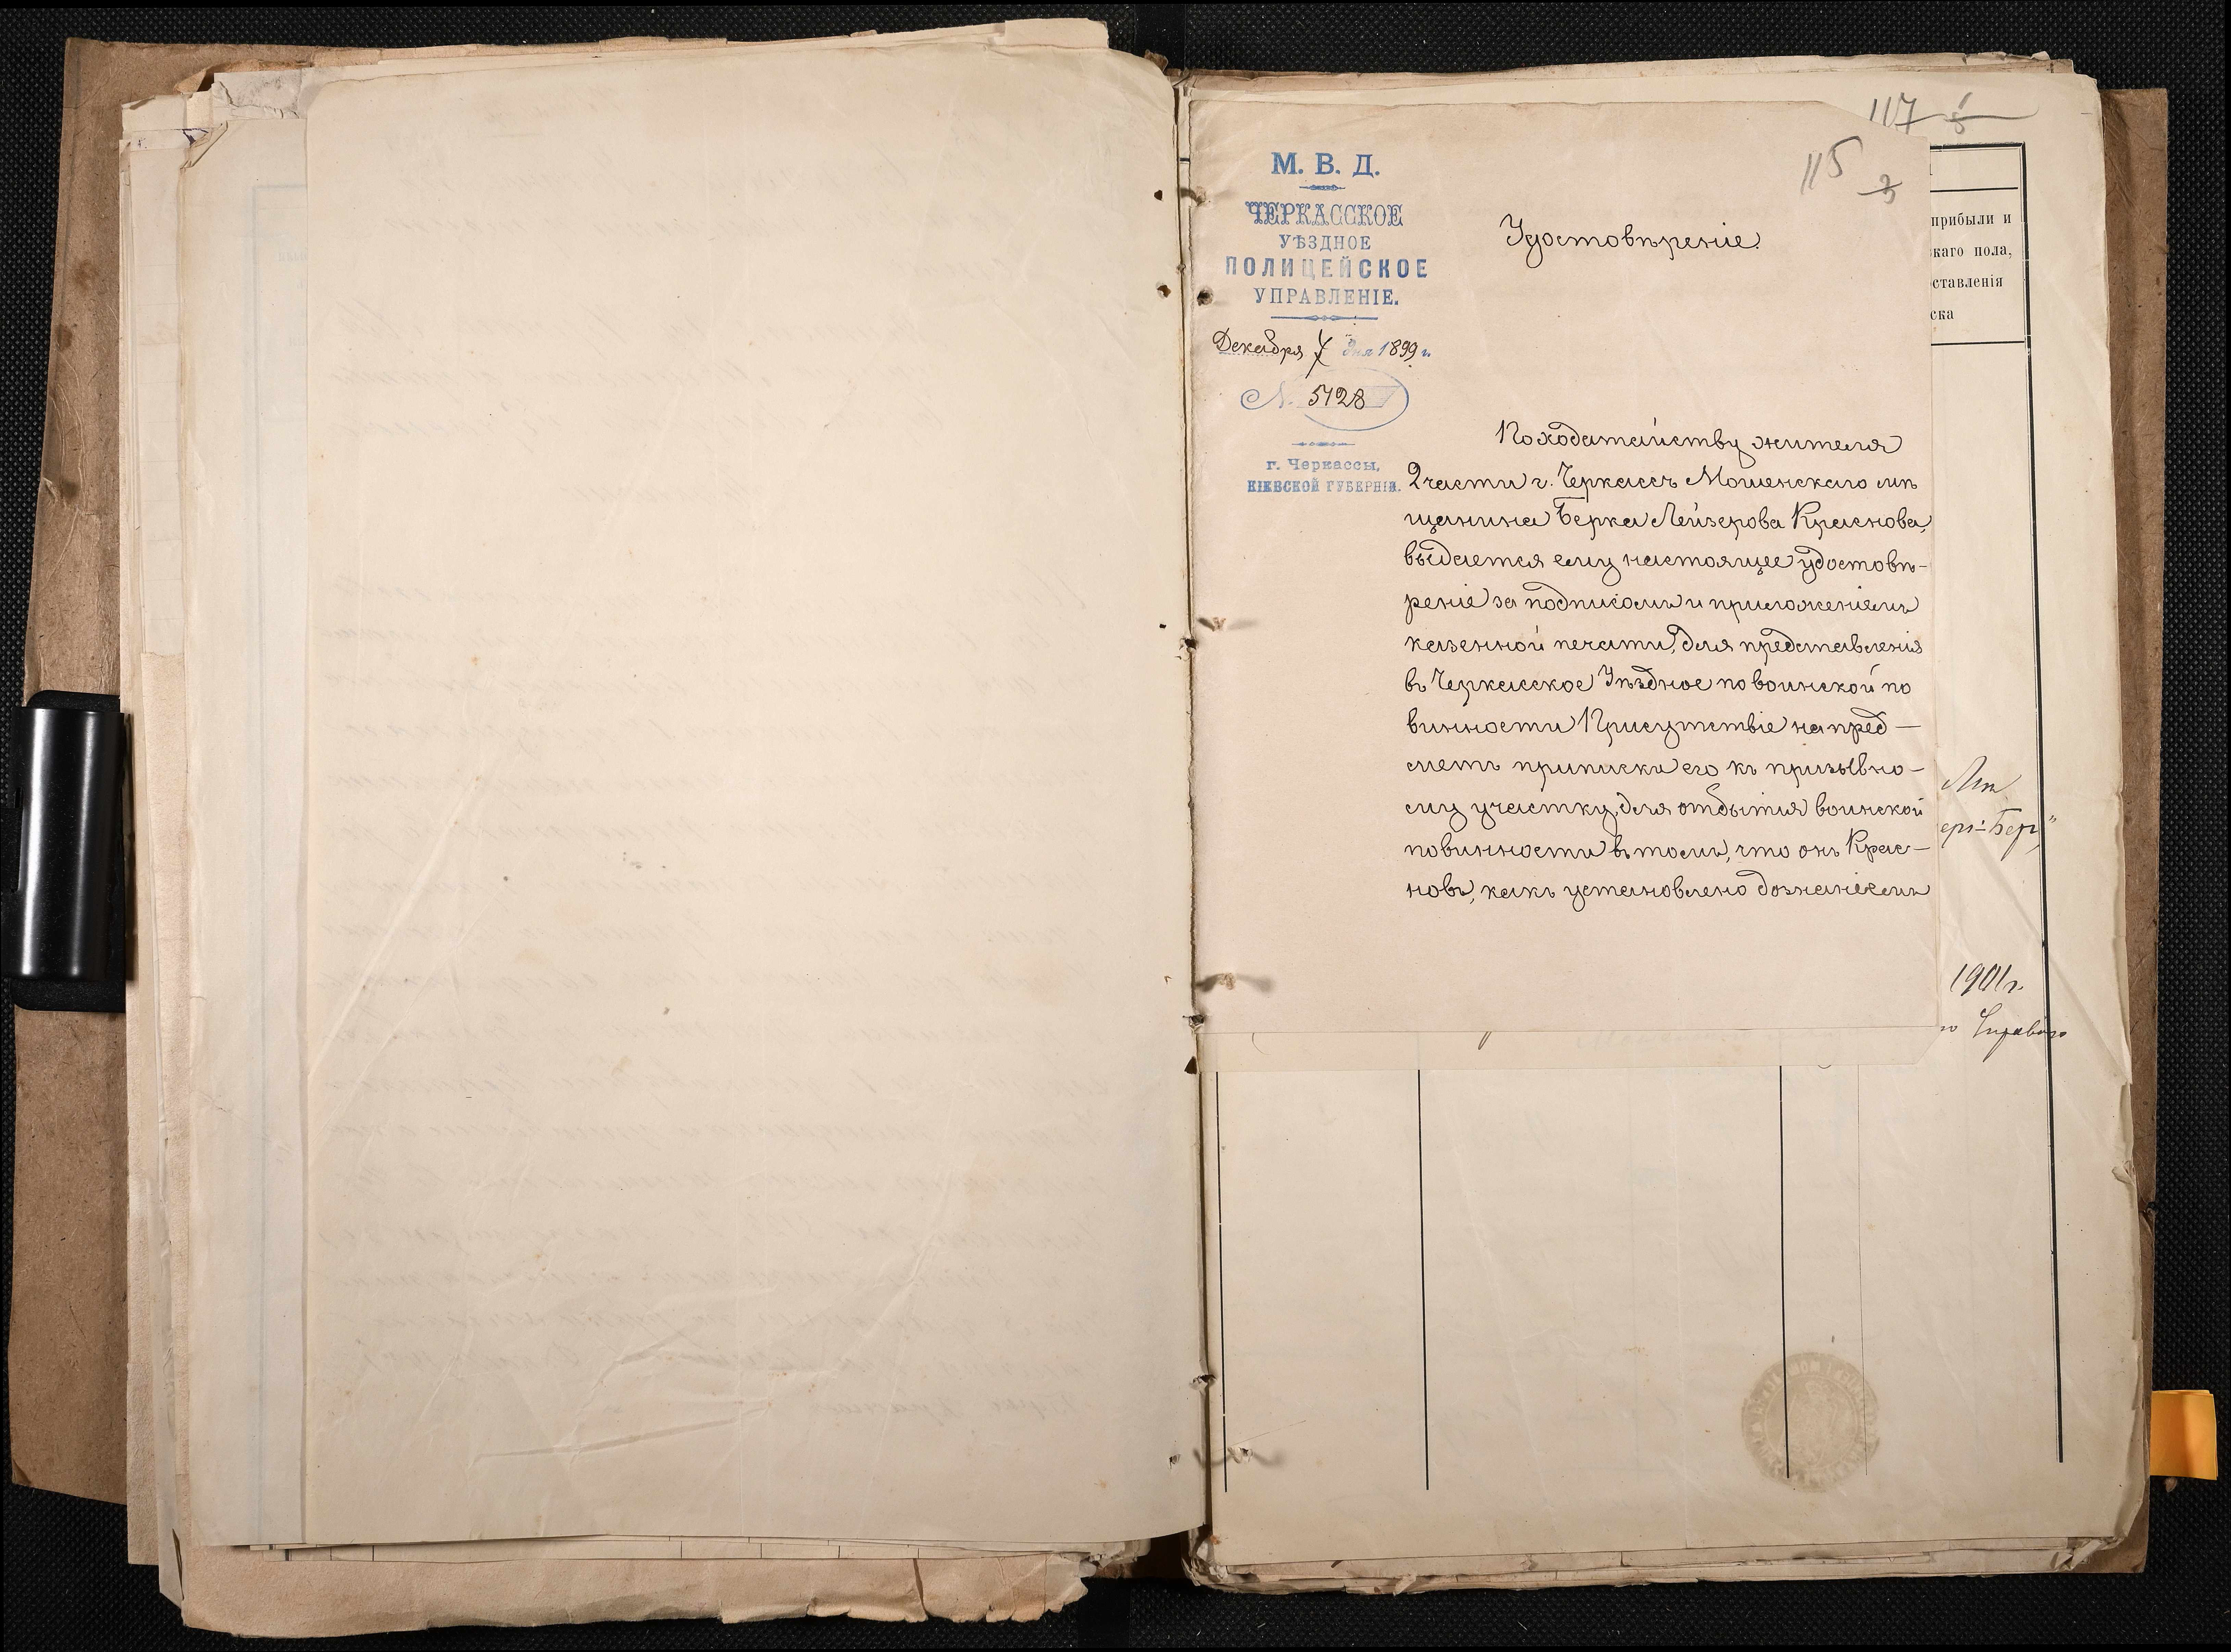 117
115
М. В. Д.
ЧЕРКАССКОЕ
УѢЗДНОЕ
ПОЛИЦЕЙСКОЕ
УПРАВЛЕНІЕ.
Декабря 4 дня 1899 г.
№ 5128
г. Черкассы,
КІЕВСКОЙ ГУБЕРНІИ.
Удостовѣреніе.
По ходатайству жителя
2 части г. Черкассъ Мошенскаго мѣ
щанина Берка Лейзерова Краснова,
выдается ему настоящее удостовѣ-
реніе за подписомъ и приложеніемъ
казенной печати, для представленія
въ Черкасское Уѣздное по воинской по
винности Присутствіе на пред-
метъ приписки его къ призывно-
му участку, для отбытія воинской
повинности въ томъ, что онъ Крас-
новъ, какъ установлено дознаніемъ
прибыли и
каго пола,
ставленія
ска
1901 г.